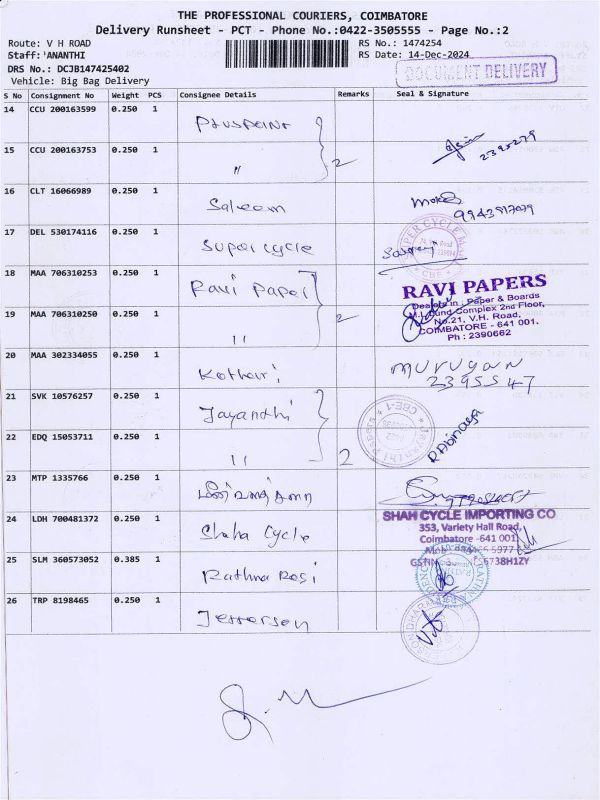 THE PROFESSIONAL COURIERS, COIMBATORE
Delivery Runsheet - PCT - Phone No.:0422-3505555 - Page No.:2
Route: V H ROAD
RS No.: 1474254
Staff: ANANTHI
RS Date: 14-Dec-2024
DRS No.: DCJB147425402
Vehicle: Big Bag Delivery
DOCUMENT DELIVERY
S No Consignment No Weight PCS Consignee Details Remarks Seal & Signature
14 CCU 200163599 0.250 1
15 CCU 200163753 0.250 1 " 2 2395279
16 CLT 16066989 0.250 1 Saleem
17 DEL 530174116 0.250 1 Super cycle
18 MAA 706310253 0.250 1 Ravi Paper
RAVI PAPERS
Dealer in : Paper & Boards
Complex 2nd Floor,
No.21, V.H. Road,
COIMBATORE - 641 001.
Ph : 2390662
19 MAA 706310250 0.250 1 " 2
20 MAA 302334055 0.250 1 Kothari MURUGAN
2395547
21 SVK 10576257 0.250 1 Jayandhi
22 EDQ 15053711 0.250 1 " 2 R Abinaya
23 MTP 1335766 0.250 1
24 LDH 700481372 0.250 1 Chaha Cycle
SHAH CYCLE IMPORTING CO
353, Variety Hall Road,
Coimbatore -641 001
25 SLM 360573052 0.385 1 Rathna Rosi
26 TRP 8198465 0.250 1 Jefferson